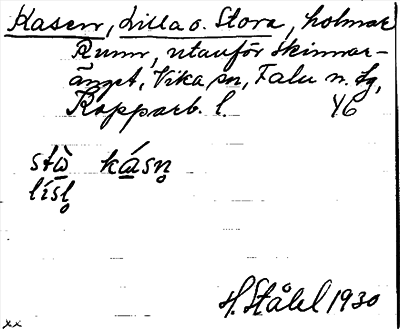 Kasen, Lilla o. Stora, holmar
Runn, utanför Skinnar-
änget, Vika sn, Falu n. tg,
Kopparb. l. 46
stɷ̀ kásn̥
lísl̥
H. Ståhl 1930
xx